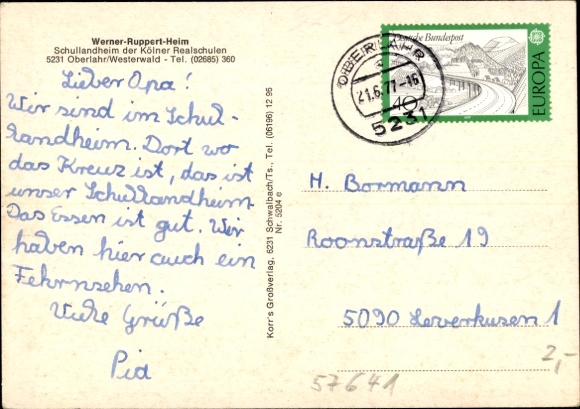 Werner-Ruppert-Heim
Schullandheim der Kölner Realschulen
5231 Oberlahr/Westerwald - Tel. (02685) 360
Lieber Opa!
Wir sind im Schul-
landheim. Dort wo
das Kreuz ist, das ist
unser Schullandheim.
Das Essen ist gut. Wir
haben hier auch ein
Fehrnsehen.
Viele Grüße
Pia
Korr's Großverlag, 6231 Schwalbach/Ts., Tel. (06196) 12 95
Nr. 5204 e
OBERLAHR
21.6.77-16
5231
Deutsche Bundespost
40
EUROPA
H. Bormann
Roonstraße 19
5090 Leverkusen 1
2,-
57641